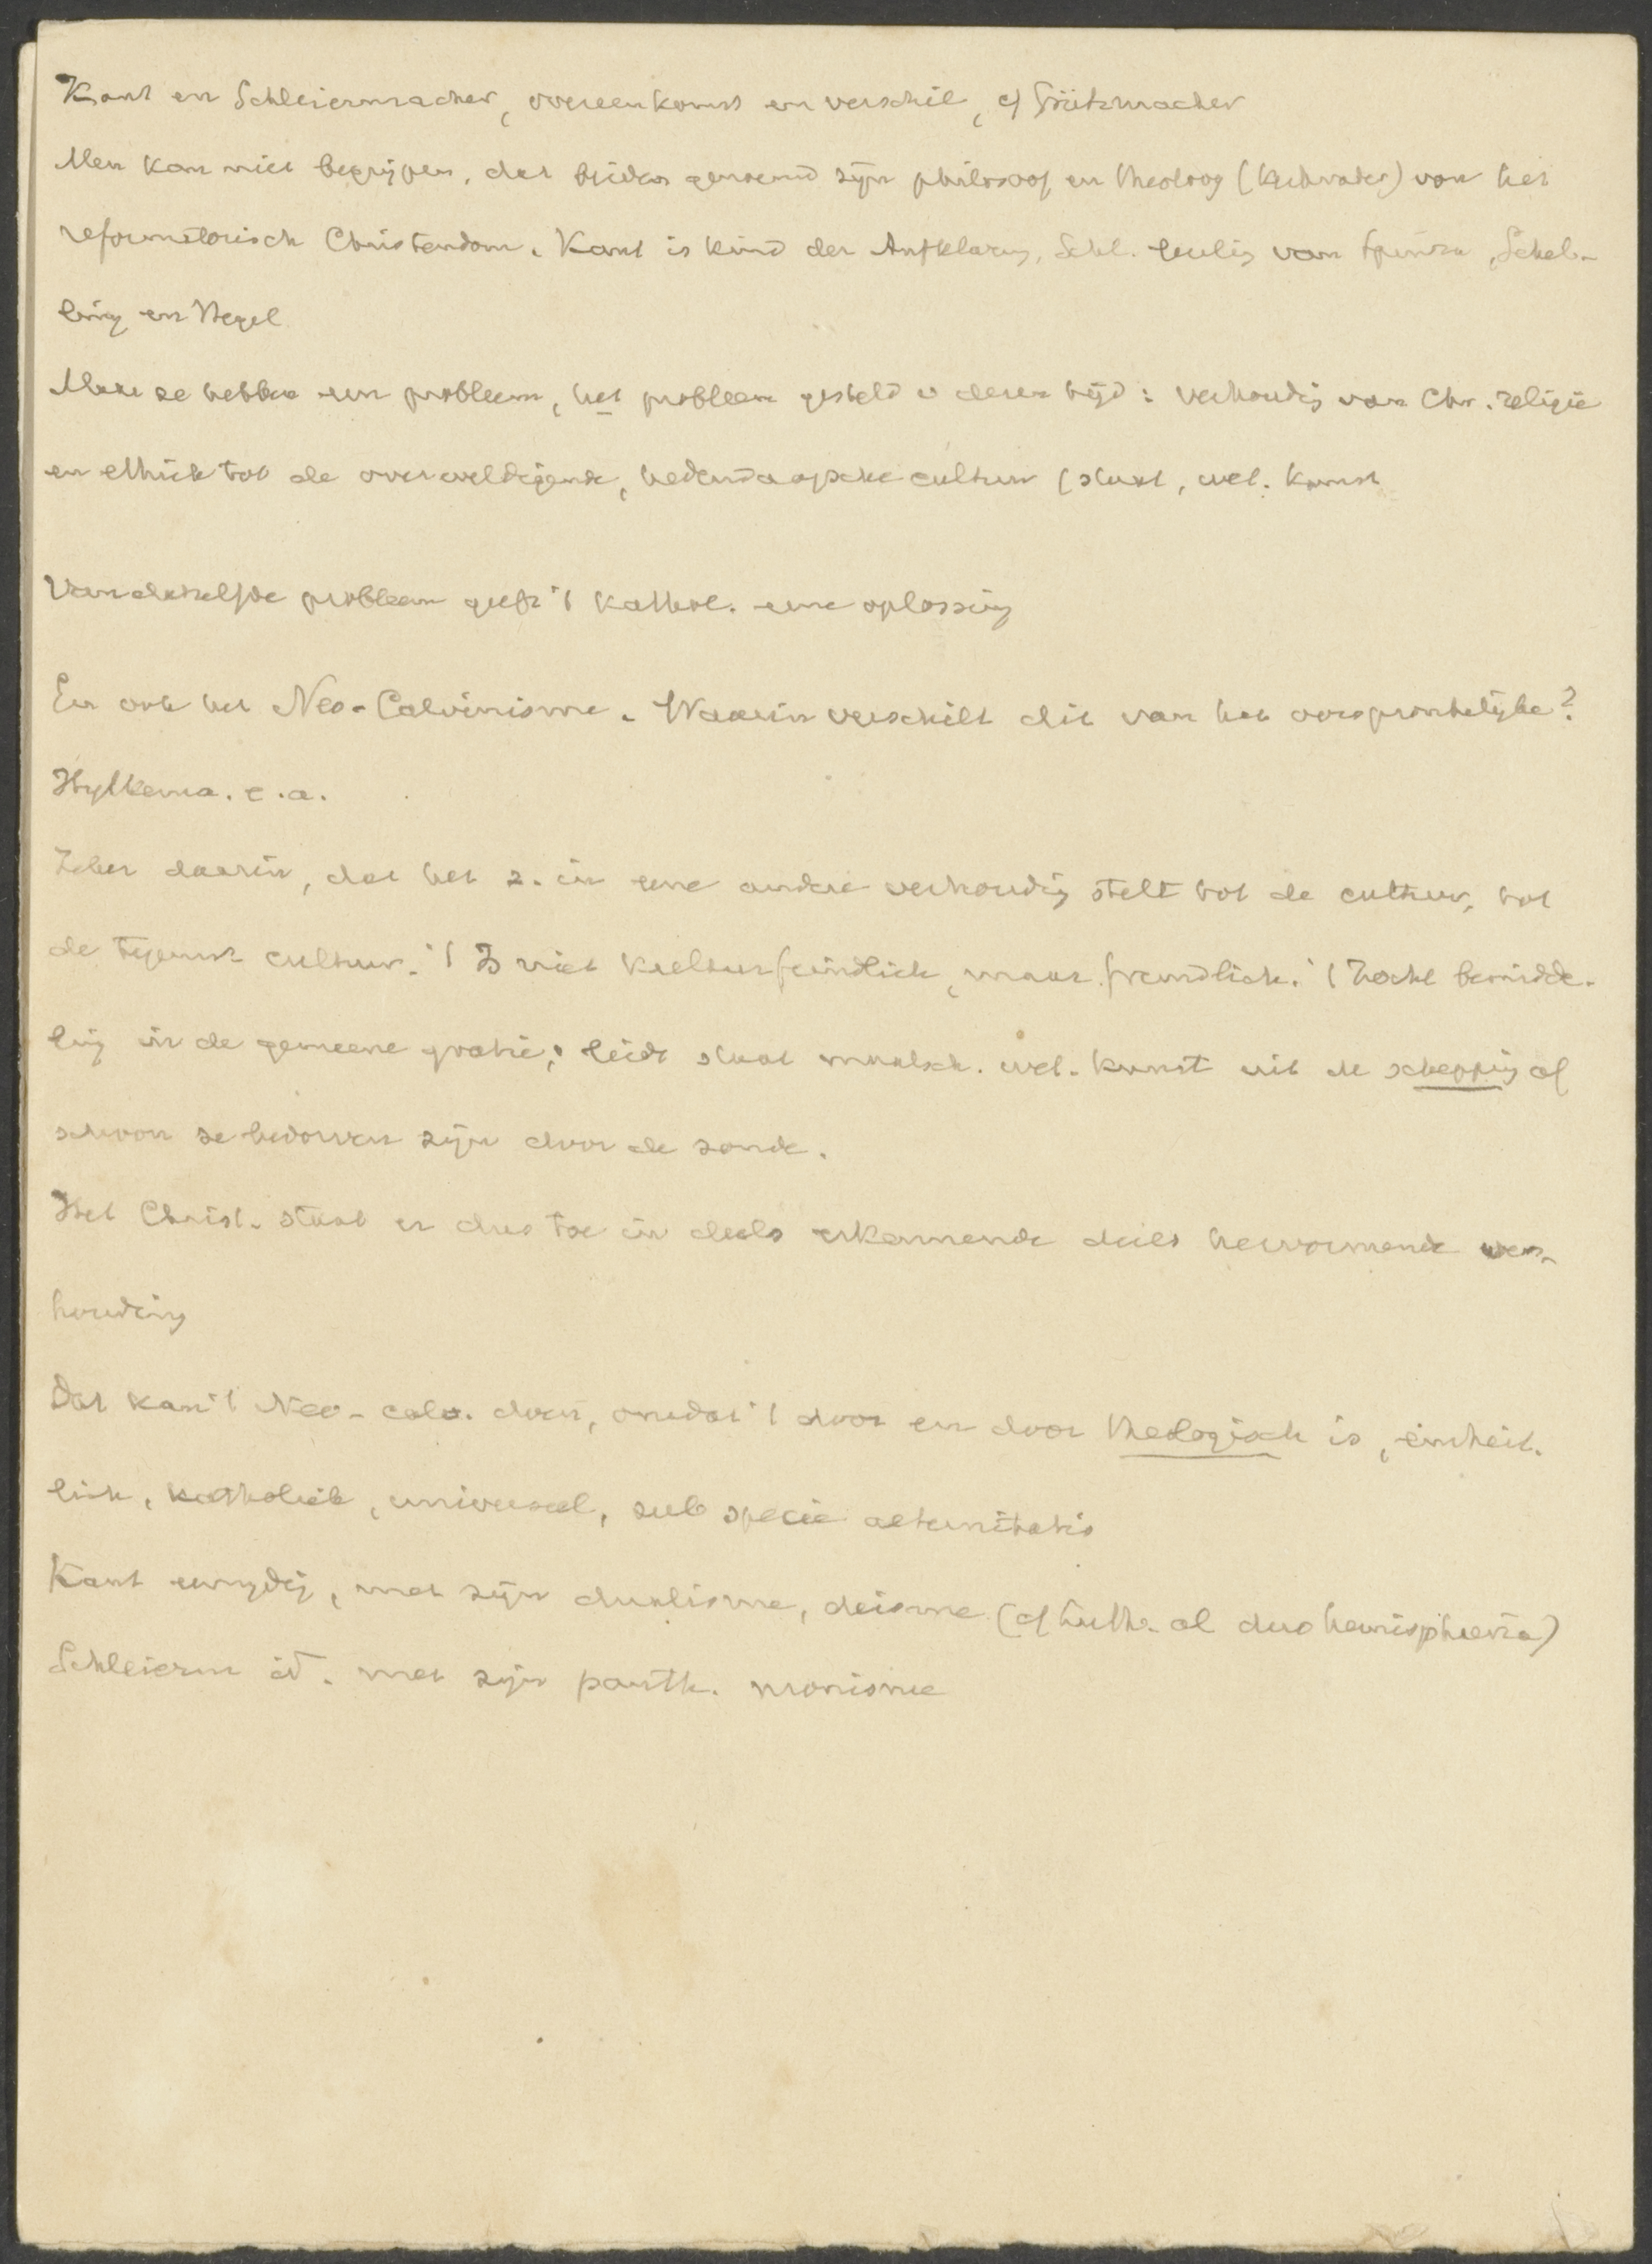 Kant en Schleiermacher, overeenkomst en verschil, cf Grützmacher
Men kan niet begrijpen, dat beiden genoemd zijn philosoof en theoloog (kerkvader) van het
reformatorisch Christendom. Kant is kind der Aufklärung, Schl. leerling van Spinoza, Schel-
ling en Hegel
Maar ze hebben een probleem, het probleem gesteld v dezen tijd: verhouding van Chr. religie
en ethiek tot de overweldigende, hedendaagsche cultuur (staat, wet. kunst
Van datzelfde probleem geeft 't Kathol. eene oplossing
En ook het Neo-Calvinisme. Waarin verschilt dit van het oorspronkelijke?
Hylkema. e.a.
Zeker daarin, dat het z. in eene andere verhouding stelt tot de cultuur, tot
de tegenw. cultuur. 't Is niet kulturfeindlich, maar freundlich. 't Zoekt bemidde-
ling in de gemeene gratie; leidt staat maatsch. wet. kunst uit de schepping of
schoon ze bedorven zijn door de zonde.
Het Christ. staat er dus toe in deels erkennende deels hervormende ver-
houding
Dat kan 't Neo-calv. doen, omdat 't door en door theologisch is, einheit-
lich, katholiek, universeel, sub specie aeternitatis
Kant eenzijdig, met zijn dualisme, deisme (cf Luth. al duo hemisphaeria)
Schleierm id. met zijn panth. monisme